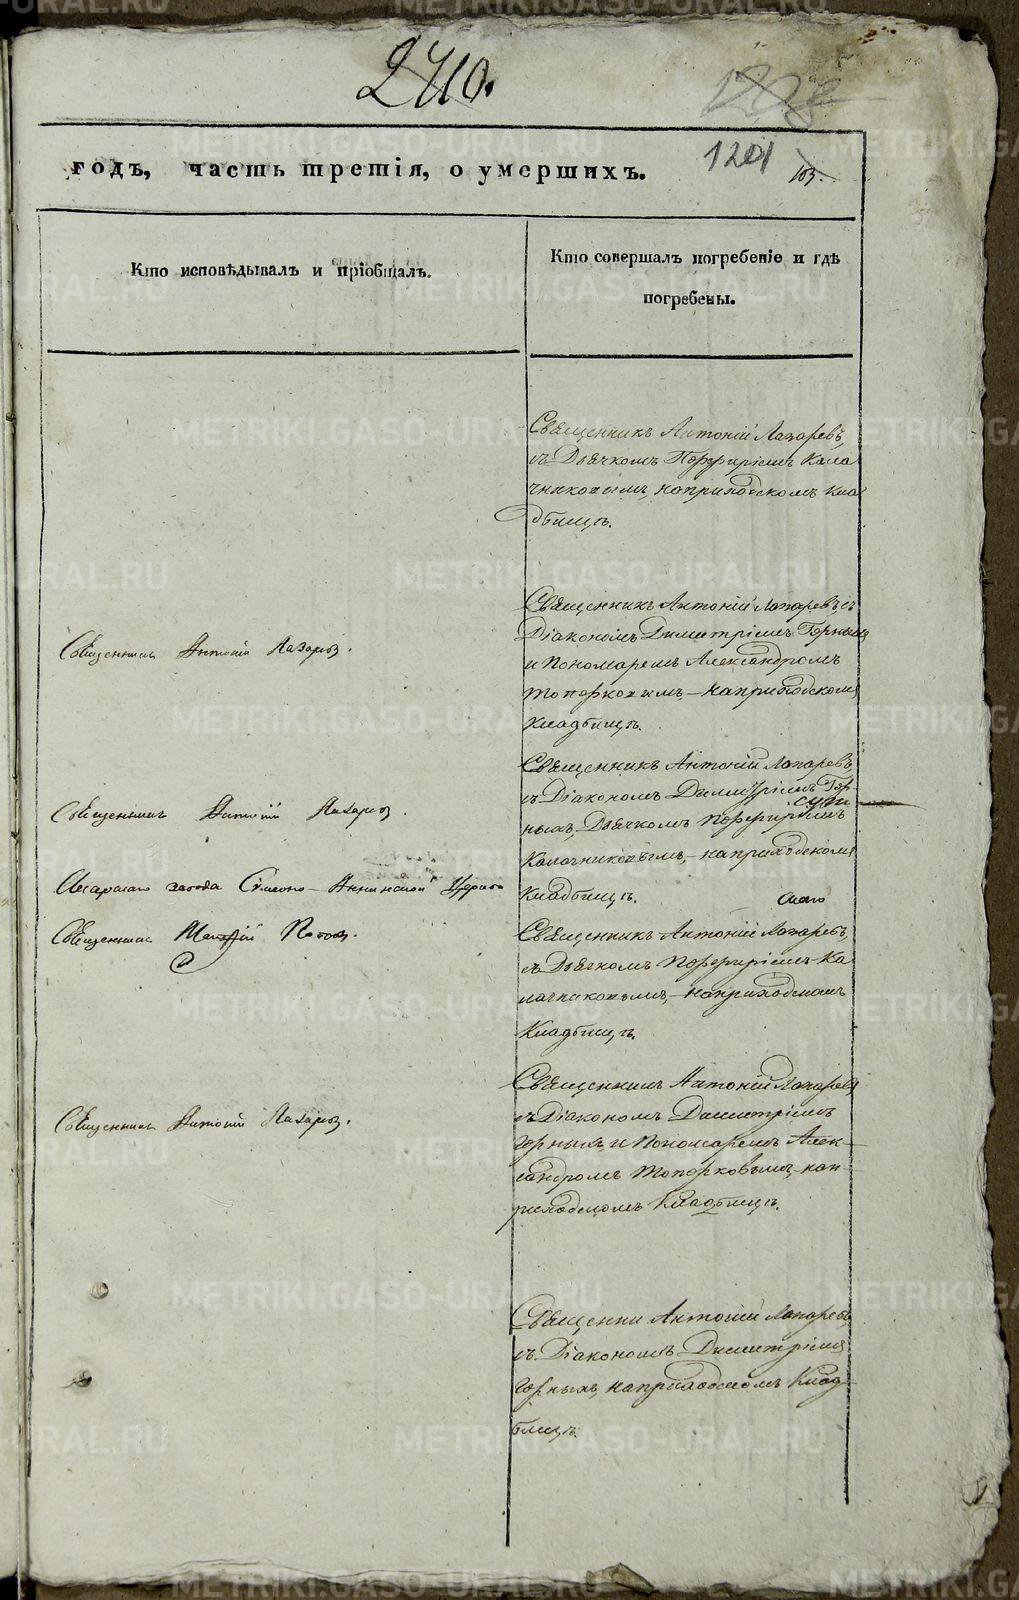 2410.
1201
103.
годъ, часть третія, о умершихъ.
Кто исповѣдывалъ и пріобщалъ.
Кто совершалъ погребеніе и гдѣ
погребены.
Священникъ Антоній Лазаревъ,
съ Дьячкомъ Порфиріемъ Кала
чниковымъ, на приходскомъ кла
дбищѣ.
Священникъ Антоній Лазаревъ.
Священникъ Антоній Лазаревъ, съ
Діакономъ Димитріемъ Горныхъ
и Пономаремъ Александромъ
Топорковымъ, на приходскомъ
кладбищѣ.
Священникъ Антоній Лазаревъ.
Священникъ Антоній Лазаревъ
съ Діакономъ Димитріемъ Гор
ныхъ, Дьячкомъ Порфиріемъ
Калачниковымъ, на приходскомъ
Кладбищѣ.
завода Симеоно-Аннинской Церкви
Священникъ Поповъ.
Священникъ Антоній Лазаревъ,
съ Дьячкомъ Порфиріемъ Ка
лачниковымъ, на приходскомъ
Кладбищѣ.
Священникъ Антоній Лазаревъ.
Священникъ Антоній Лазаревъ
съ Діакономъ Димитріемъ
Горныхъ и Пономаремъ Алек-
сандромъ Топорковымъ, на п-
риходскомъ Кладбищѣ.
Священни Антоній Лазаревъ,
съ Діакономъ Димитріемъ
Горныхъ, на приходскомъ Клад-
бищѣ.
METRIKI.GASO-URAL.RU